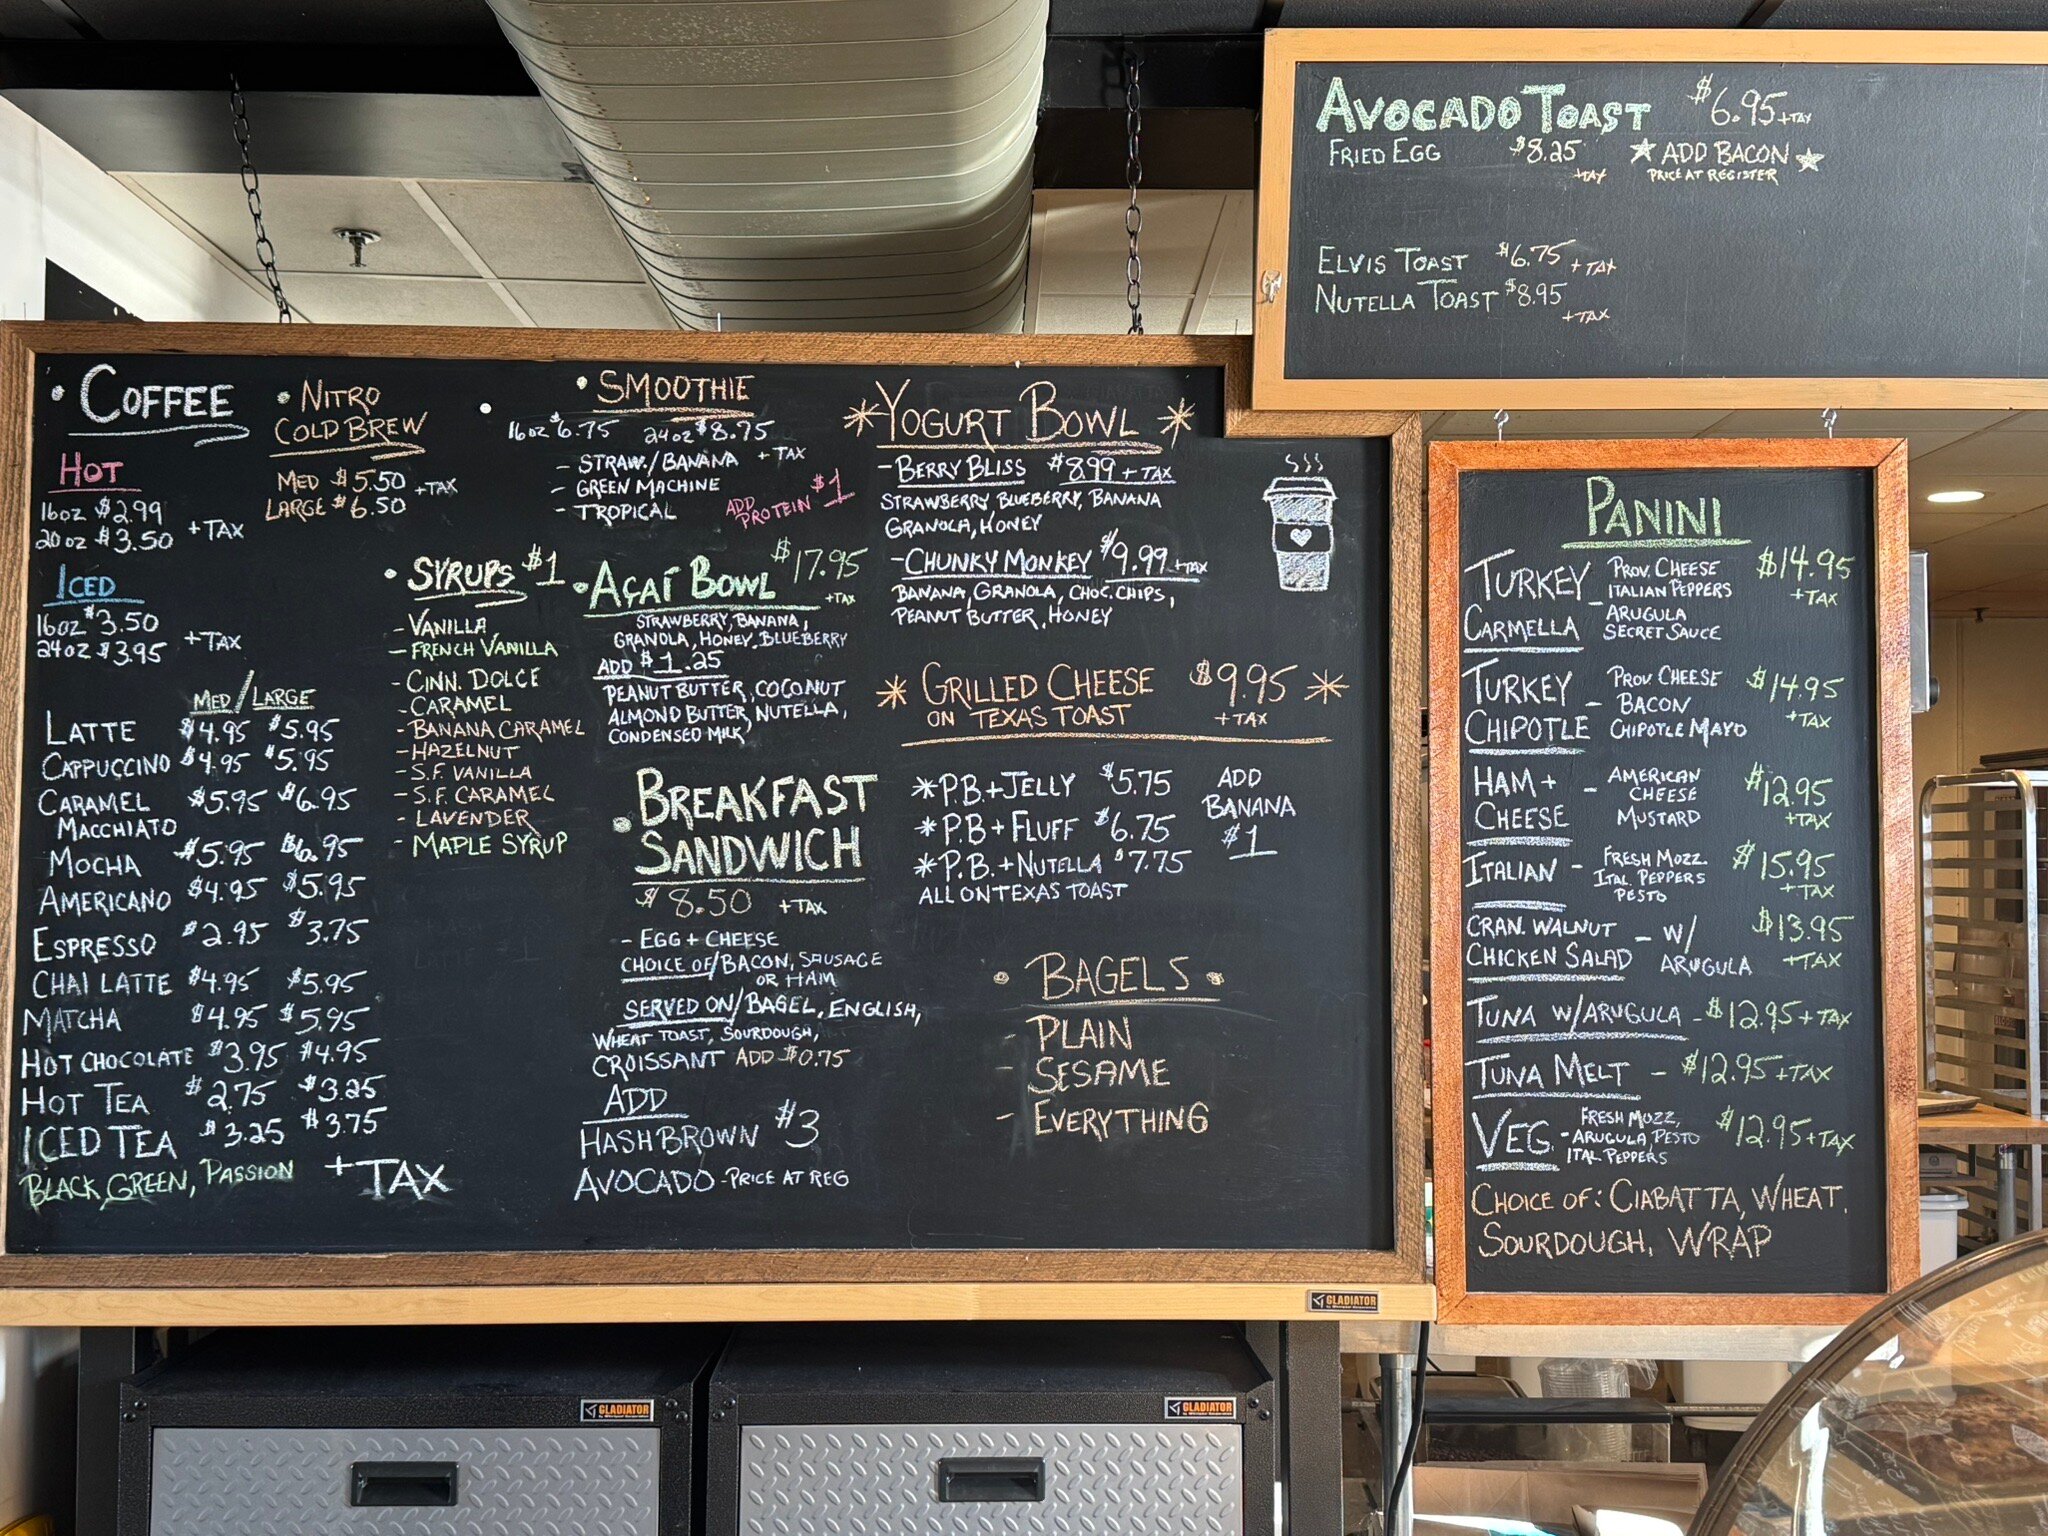 AVOCADO TOAST $6.95 +TAX
FRIED EGG $8.25 +TAX
ADD BACON
PRICE AT REGISTER
ELVIS TOAST $6.75 +TAX
NUTELLA TOAST $8.95 +TAX
COFFEE
HOT
16oz $2.99
20oz $3.50
+TAX
ICED
16oz $3.50
24oz $3.95
+TAX
MED/LARGE
LATTE $4.95 $5.95
CAPPUCCINO $4.95 $5.95
CARAMEL $5.95 $6.95
MACCHIATO
MOCHA $5.95 $6.95
AMERICANO $4.95 $5.95
ESPRESSO $2.95 $3.75
CHAI LATTE $4.95 $5.95
MATCHA $4.95 $5.95
HOT CHOCOLATE $3.95 $4.95
HOT TEA $2.75 $3.25
ICED TEA $3.25 $3.75
BLACK, GREEN, PASSION +TAX
NITRO
COLD BREW
MED $5.50
LARGE $6.50
+TAX
SYRUPS $1
- VANILLA
- FRENCH VANILLA
- CINN. DOLCE
- CARAMEL
- BANANA CARAMEL
- HAZELNUT
- S.F. VANILLA
- S.F. CARAMEL
- LAVENDER
- MAPLE SYRUP
SMOOTHIE
16oz $6.75 24oz $8.75
+TAX
- STRAW./BANANA
- GREEN MACHINE
- TROPICAL
ADD PROTEIN $1
AÇAÍ BOWL $17.95
+TAX
STRAWBERRY, BANANA,
GRANOLA, HONEY, BLUEBERRY
ADD $1.25
PEANUT BUTTER, COCONUT
ALMOND BUTTER, NUTELLA,
CONDENSED MILK
BREAKFAST
SANDWICH
$8.50 +TAX
- EGG + CHEESE
CHOICE OF/BACON, SAUSAGE
OR HAM
SERVED ON/BAGEL, ENGLISH,
WHEAT TOAST, SOURDOUGH,
CROISSANT ADD $0.75
ADD
HASHBROWN $3
AVOCADO - PRICE AT REG
YOGURT BOWL
- BERRY BLISS $8.99 + TAX
STRAWBERRY, BLUEBERRY, BANANA
GRANOLA, HONEY
- CHUNKY MONKEY $9.99 +TAX
BANANA, GRANOLA, CHOC. CHIPS,
PEANUT BUTTER, HONEY
GRILLED CHEESE $9.95
ON TEXAS TOAST +TAX
*P.B.+JELLY $5.75
*P.B+FLUFF $6.75
*P.B.+NUTELLA $7.75
ALL ON TEXAS TOAST
ADD
BANANA
$1
BAGELS
- PLAIN
- SESAME
- EVERYTHING
PANINI
TURKEY CARMELLA - PROV. CHEESE
ITALIAN PEPPERS
ARUGULA
SECRET SAUCE
$14.95
+TAX
TURKEY CHIPOTLE - PROV CHEESE
BACON
CHIPOTLE MAYO
$14.95
+TAX
HAM + CHEESE - AMERICAN
CHEESE
MUSTARD
$12.95
+TAX
ITALIAN - FRESH MOZZ
ITAL. PEPPERS
PESTO
$15.95
+TAX
CRAN. WALNUT
CHICKEN SALAD - W/
ARUGULA
$13.95
+TAX
TUNA W/ARUGULA - $12.95 + TAX
TUNA MELT - $12.95 +TAX
VEG. - FRESH MOZZ,
ARUGULA PESTO
ITAL PEPPERS
$12.95+TAX
CHOICE OF: CIABATTA, WHEAT,
SOURDOUGH, WRAP
GLADIATOR
GLADIATOR
GLADIATOR